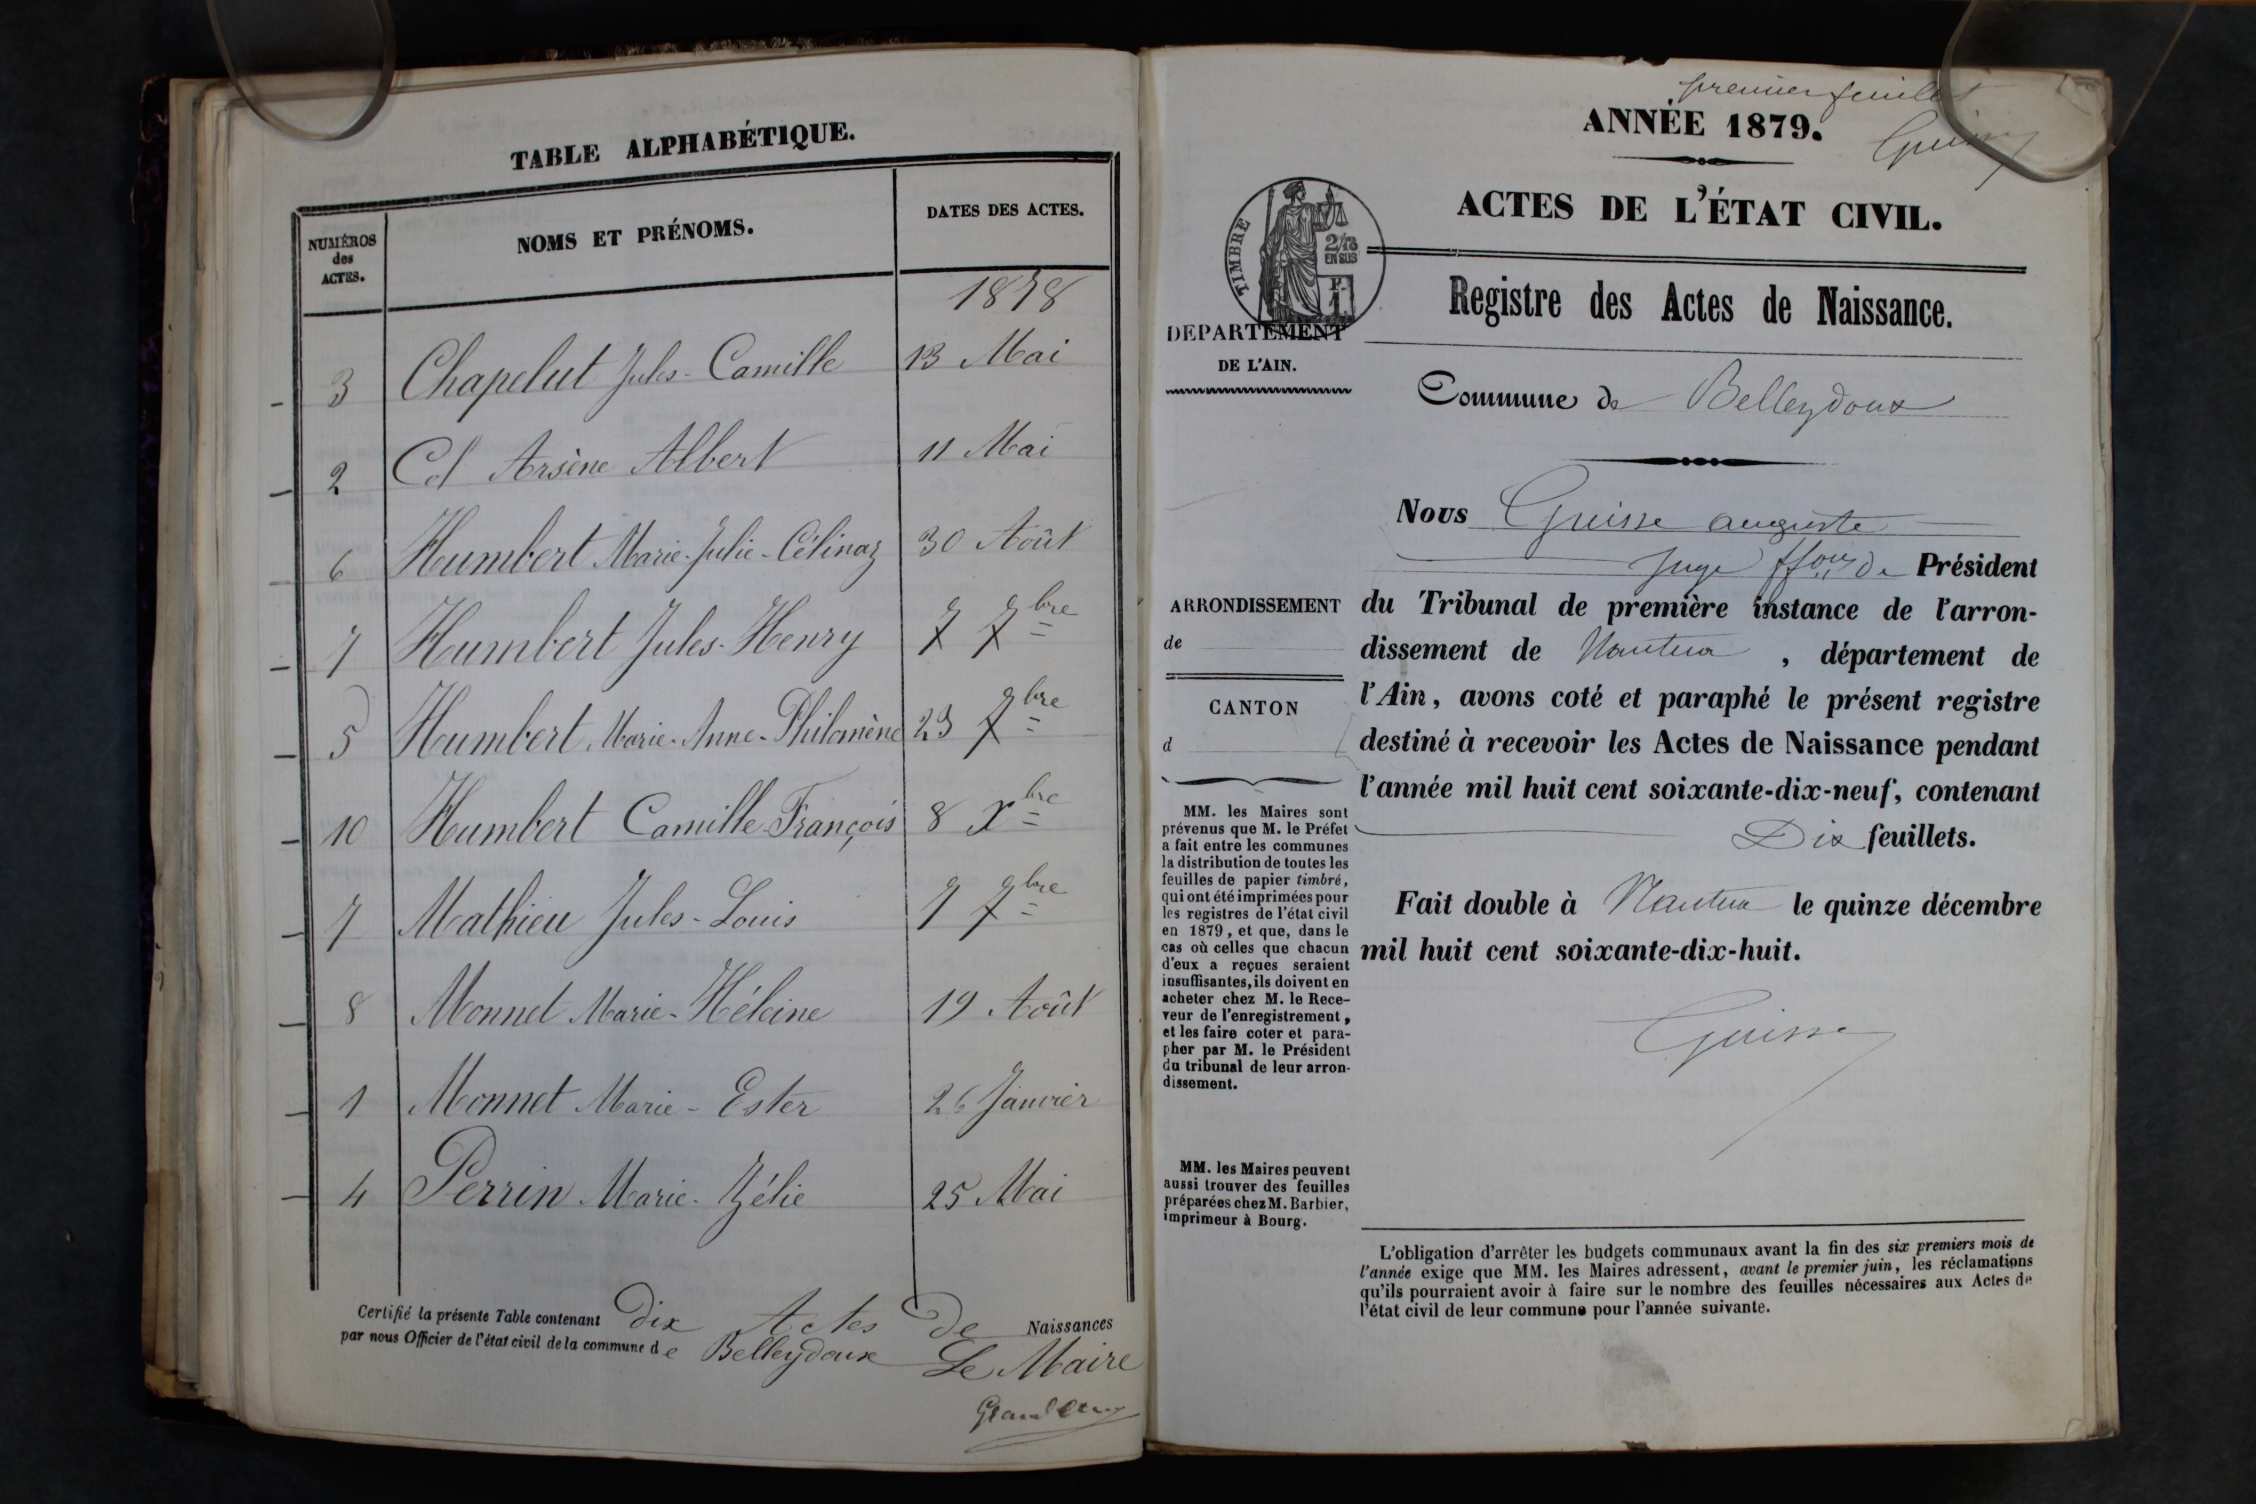 TABLE ALPHABÉTIQUE.
NUMÉROS des ACTES.
NOMS ET PRÉNOMS.
DATES DES ACTES.
1878
3 Chapelut Jules-Camille 13 Mai
2 Cd Arsène Albert 11 Mai
6 Humbert Marie-Julie-Célinaz 30 Août
7 Humbert Jules-Henry 7 7bre
5 Humbert Marie-Anne-Philomène 23 7bre
10 Humbert Camille-François 8 Xbre
7 Mathieu Jules-Louis 7 7bre
8 Monnet Marie-Héleine 19 Août
1 Monnet Marie-Ester 26 Janvier
4 Perrin Marie-Zélie 25 Mai
Certifié la présente Table contenant dix Actes De Naissances
par nous Officier de l'état civil de la commune de Belleydoux
Le Maire
premier feuillet
ANNÉE 1879.
ACTES DE L'ÉTAT CIVIL.
TIMBRE
2/10
EN SUS
F.
1
Registre des Actes de Naissance.
DEPARTEMENT
DE L'AIN.
Commune de Belleydoux
Nous Guisse auguste
Juge ffons de Président
du Tribunal de première instance de l'arron-
dissement de Nantua, département de
l'Ain, avons coté et paraphé le présent registre
destiné à recevoir les Actes de Naissance pendant
l'année mil huit cent soixante-dix-neuf, contenant
Dix feuillets.
Fait double à Nantua le quinze décembre
mil huit cent soixante-dix-huit.
Guisse
ARRONDISSEMENT
de
CANTON
d
MM. les Maires sont
prévenus que M. le Préfet
a fait entre les communes
la distribution de toutes les
feuilles de papier timbré,
qui ont été imprimées pour
les registres de l'état civil
en 1879, et que, dans le
cas où celles que chacun
d'eux a reçues seraient
insuffisantes, ils doivent en
acheter chez M. le Rece-
veur de l'enregistrement,
et les faire coter et para-
pher par M. le Président
du tribunal de leur arron-
dissement.
MM. les Maires peuvent
aussi trouver des feuilles
préparées chez M. Barbier,
imprimeur à Bourg.
L'obligation d'arrêter les budgets communaux avant la fin des six premiers mois de
l'année exige que MM. les Maires adressent, avant le premier juin, les réclamations
qu'ils pourraient avoir à faire sur le nombre des feuilles nécessaires aux Actes de
l'état civil de leur commune pour l'année suivante.